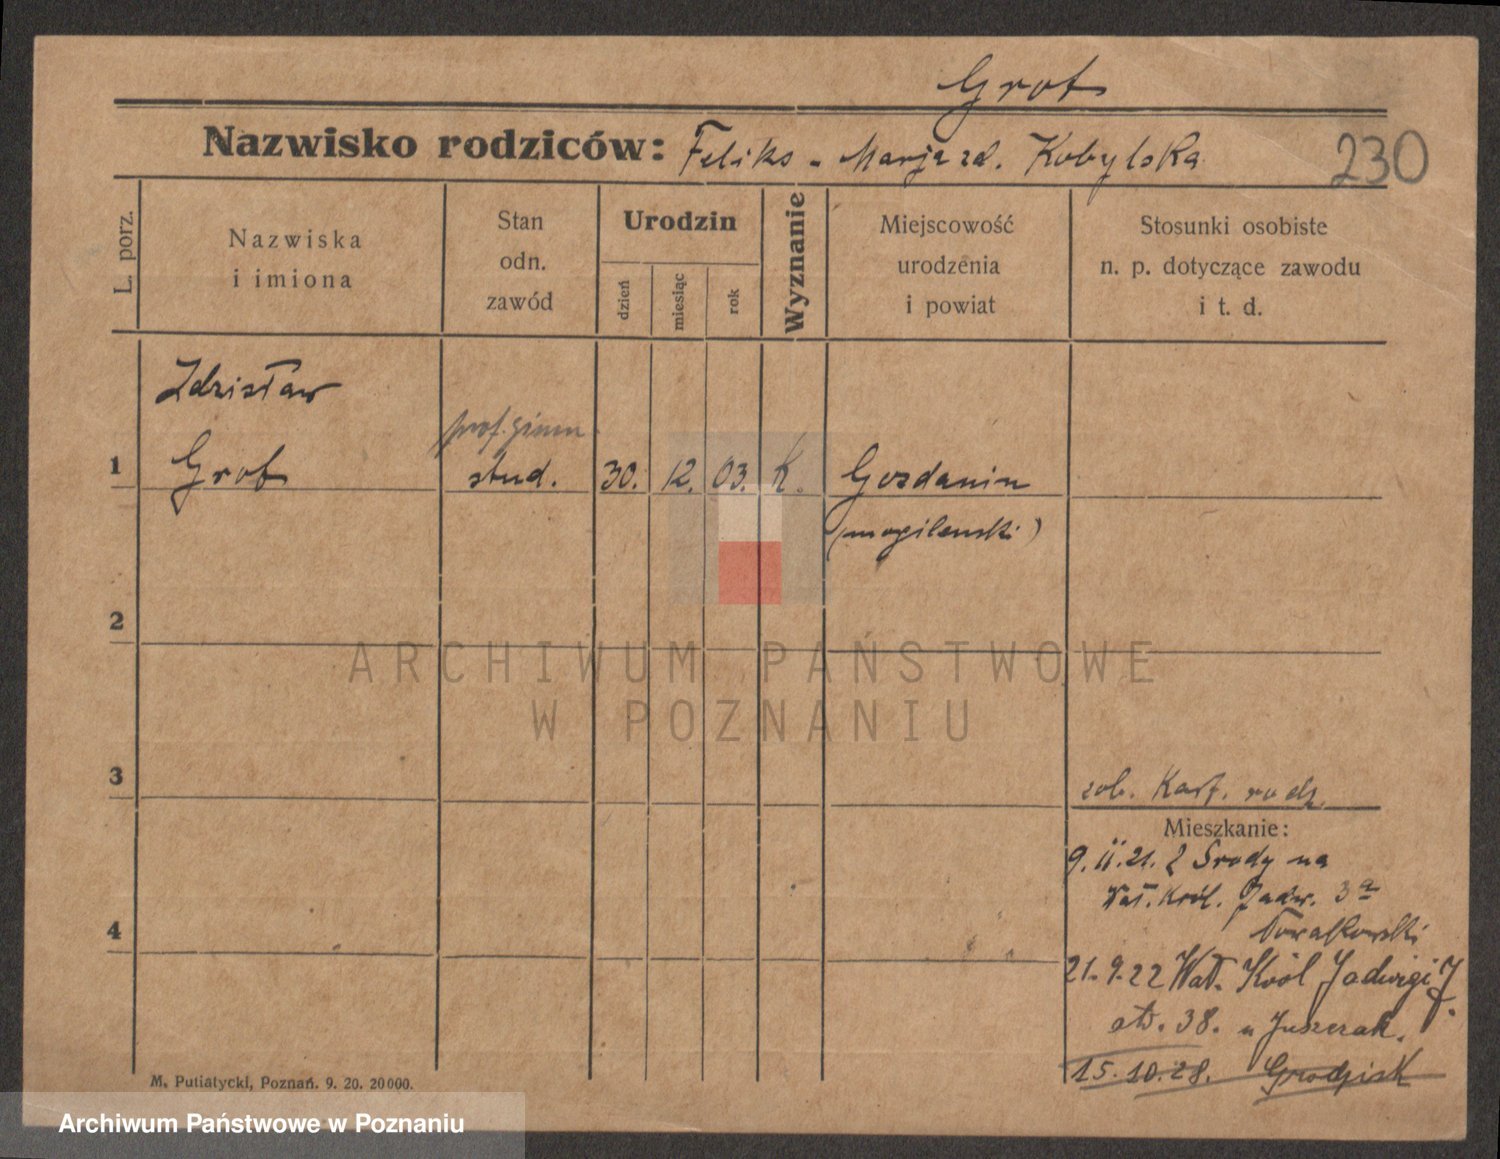 Grot
Nazwisko rodziców: Feliks - Marja zd. Kobylska
230
L. porz.
Nazwiska
i imiona
Stan
odn.
zawód
Urodzin
dzień
miesiąc
rok
Wyznanie
Miejscowość
urodzenia
i powiat
Stosunki osobiste
n. p. dotyczące zawodu
i t. d.
Zdzisław
prof. gimn
1 Grot stud. 30. 12. 03. K. Gozdanin
(mogilenski)
2
ARCHIWUM PAŃSTWOWE
W POZNANIU
3
zob. Kart. rodz.
Mieszkanie:
9. II. 21. Z Środy na
Wał. Król. Jadw. 3a
21.9.22 Wał. Król Jadwigi
38. u Juszczak.
15.10.28. Grodzisk
4
M. Putiatycki, Poznań. 9. 20. 20000.
Archiwum Państwowe w Poznaniu